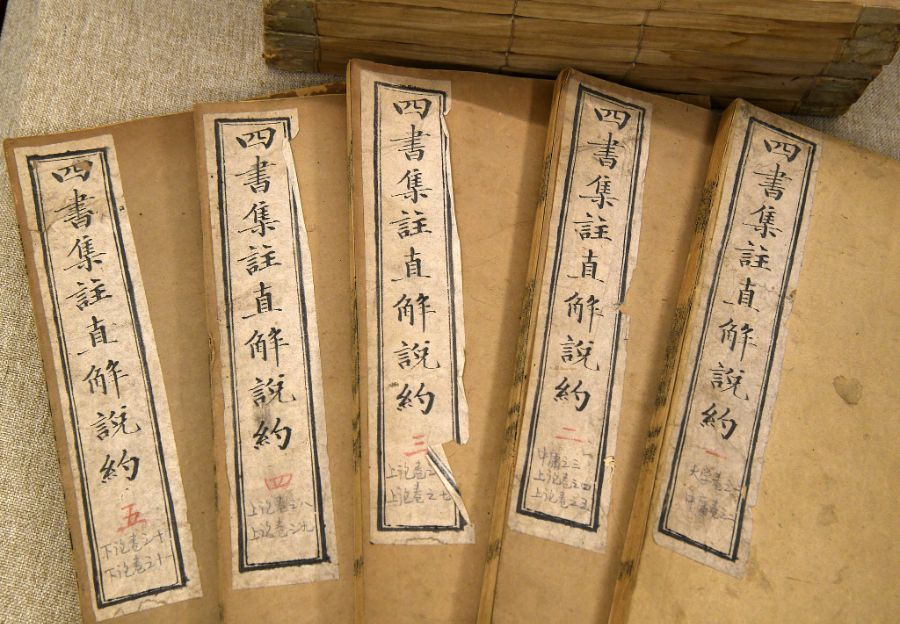 四書集註直解説約
一
大学卷之一
中庸卷之二
四書集註直解説約
二
中庸之三
上论卷之四
上论卷之五
四書集註直解説約
三
上论卷之
上论卷之七
四書集註直解説約
四
上论卷之八
上论卷之九
四書集註直解説約
五
下论卷之十
下论卷之十一